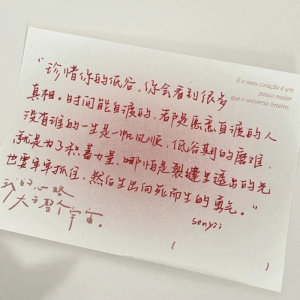 E o meu coração é um
pouco maior
que o universo inteiro.
“珍惜你的低谷,你会看到很多
真相。时间能自渡的,都是愿意自渡的人
没有谁的一生是一帆风顺,低谷期的磨难,
就是为了积蓄力量,哪怕是裂缝里透出的光
也要牢牢抓住,然后生出向死而生的勇气。”
sonyzi
我的心略
大于整个宇宙。